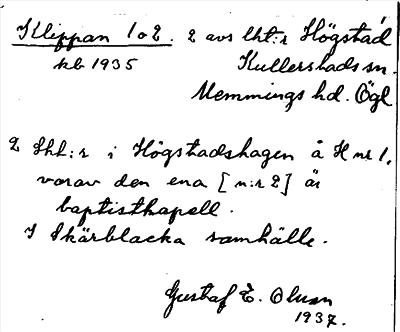 Klippan 1 o 2. 2 avs lht:r Högstad
kb 1935 Kullerstads sn.
Memmings hd. Ögl
2 lht:r i Högstadshagen å H nr 1,
varav den ena [n:r 2] är
baptistkapell.
I Skärblacka samhälle.
Gustaf E. Olsson
1937.